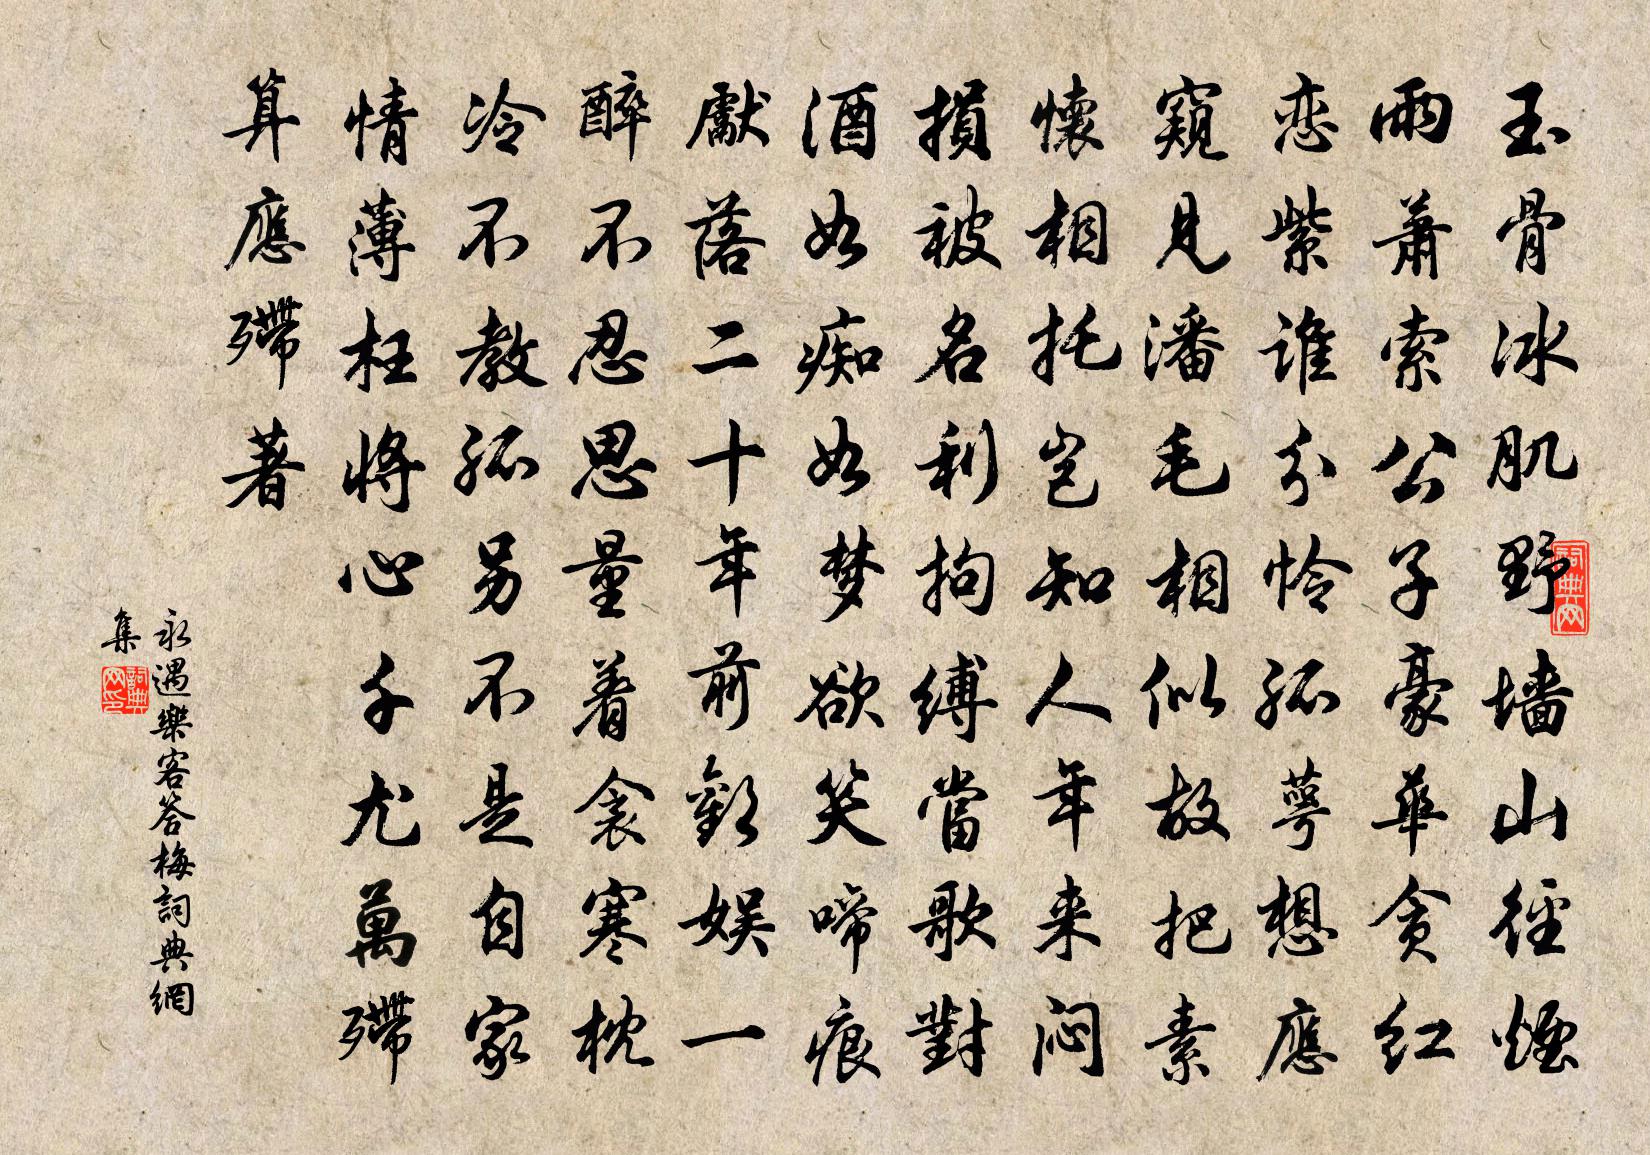 玉骨冰肌野墙山径煙
雨萧索公子豪华贪红
恋紫谁分怜孤萼想應
窥见潘毛相似故把素
懷相托岂知人年来闷
損被名利拘缚當歌對
酒如痴如梦欲笑啼痕
獻落二十年前歡娱一
醉不忍思量着衾寒枕
冷不教孤另不是自家
情薄枉将心千尤萬殢
算應殢著
永遇樂客答梅詞典網
集
詞典网
詞典网印